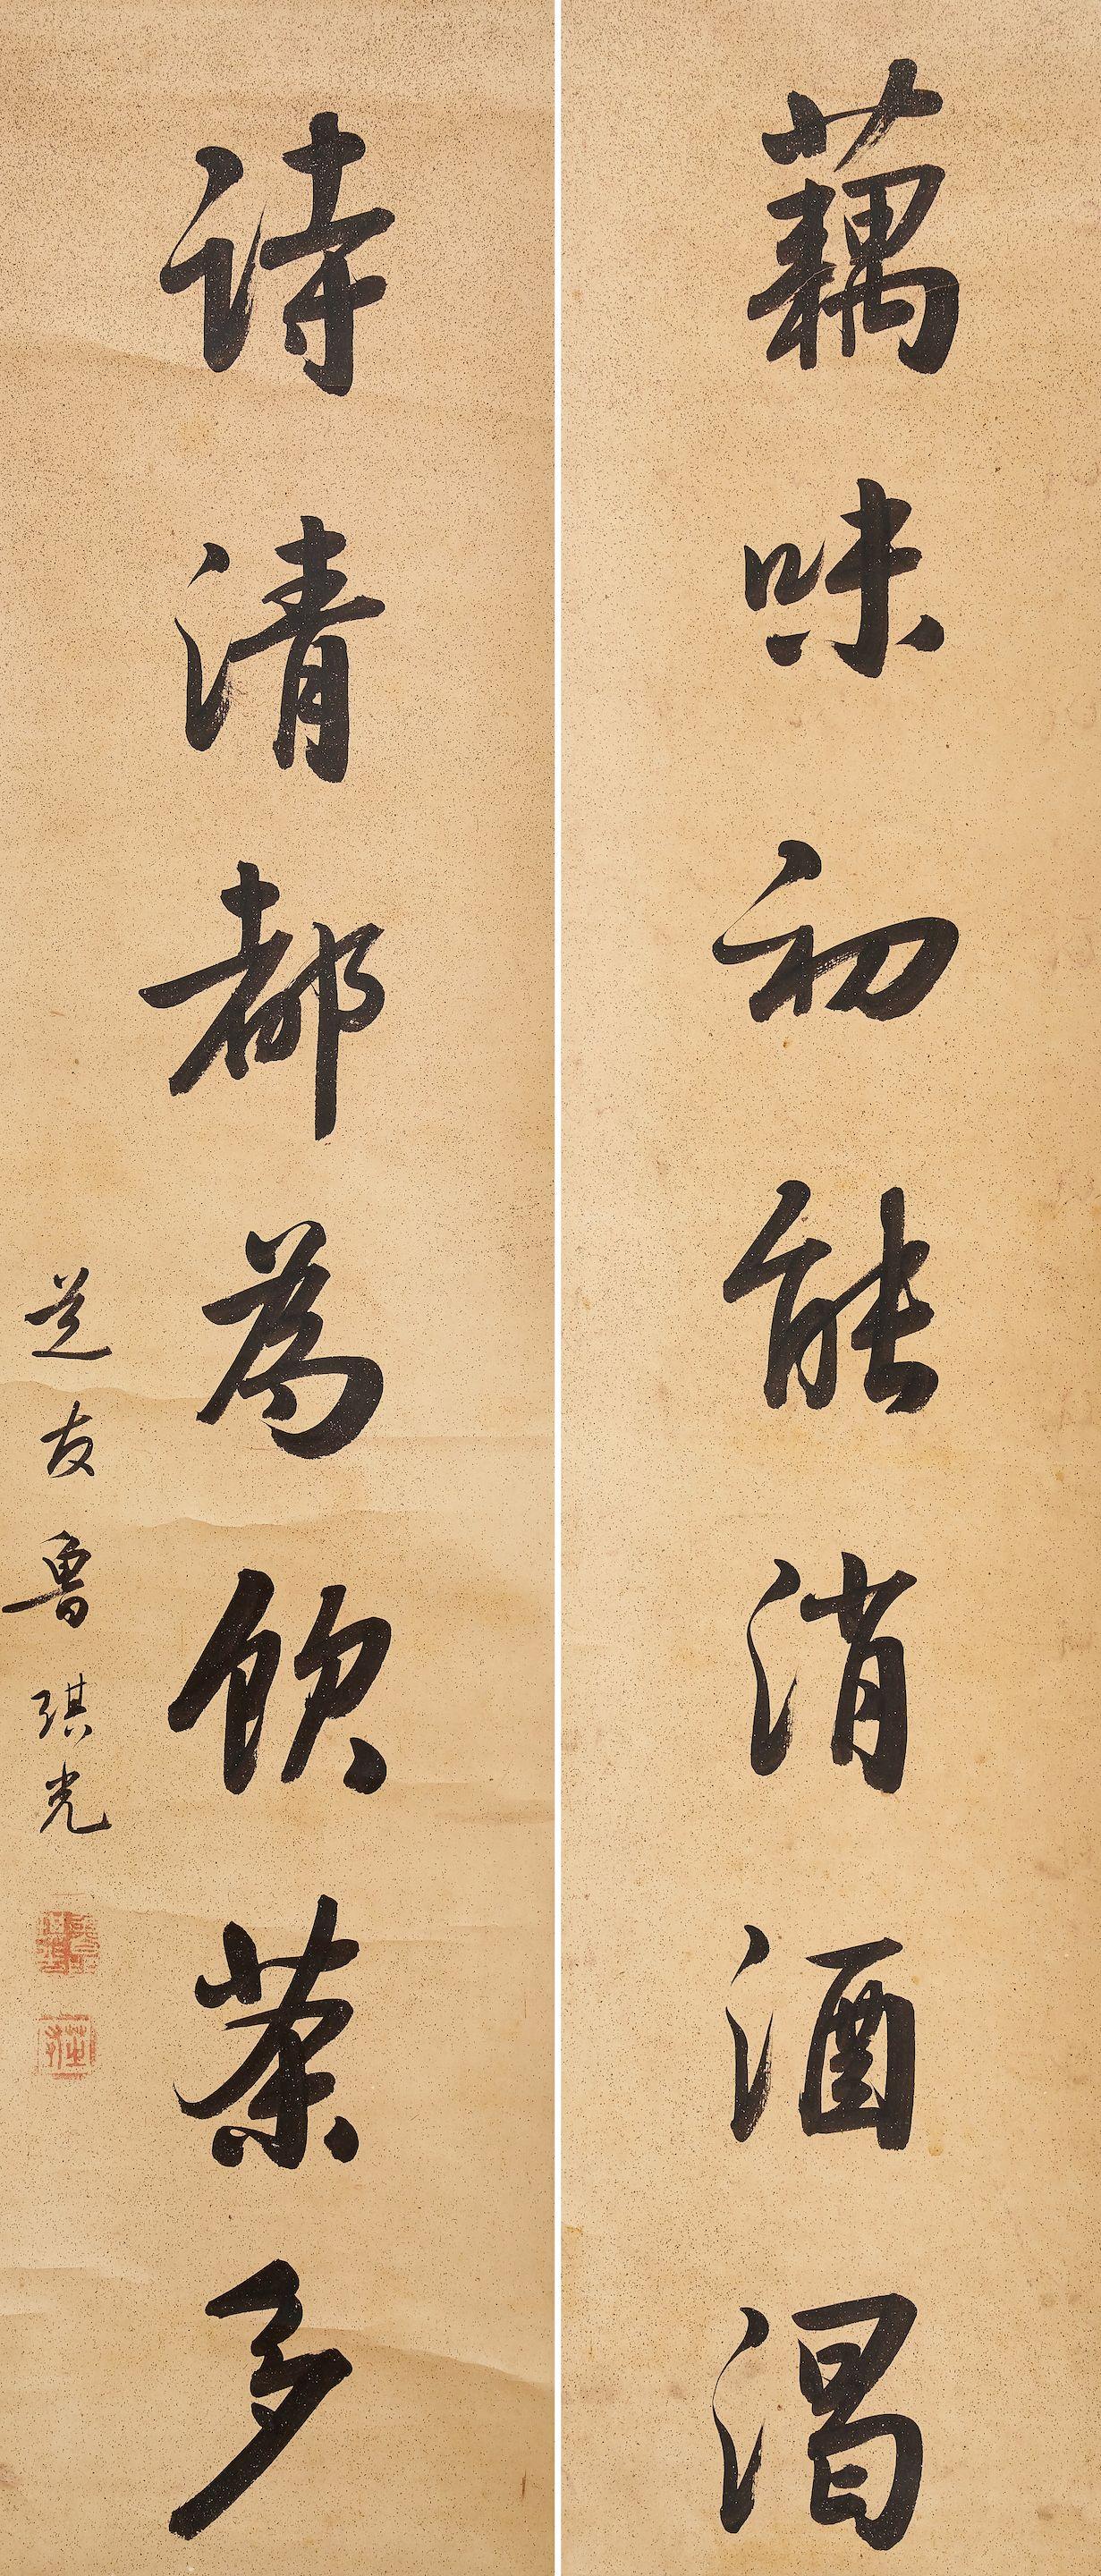 藕味初能消酒渴
詩清都為飲茶多
芝友魯琪光